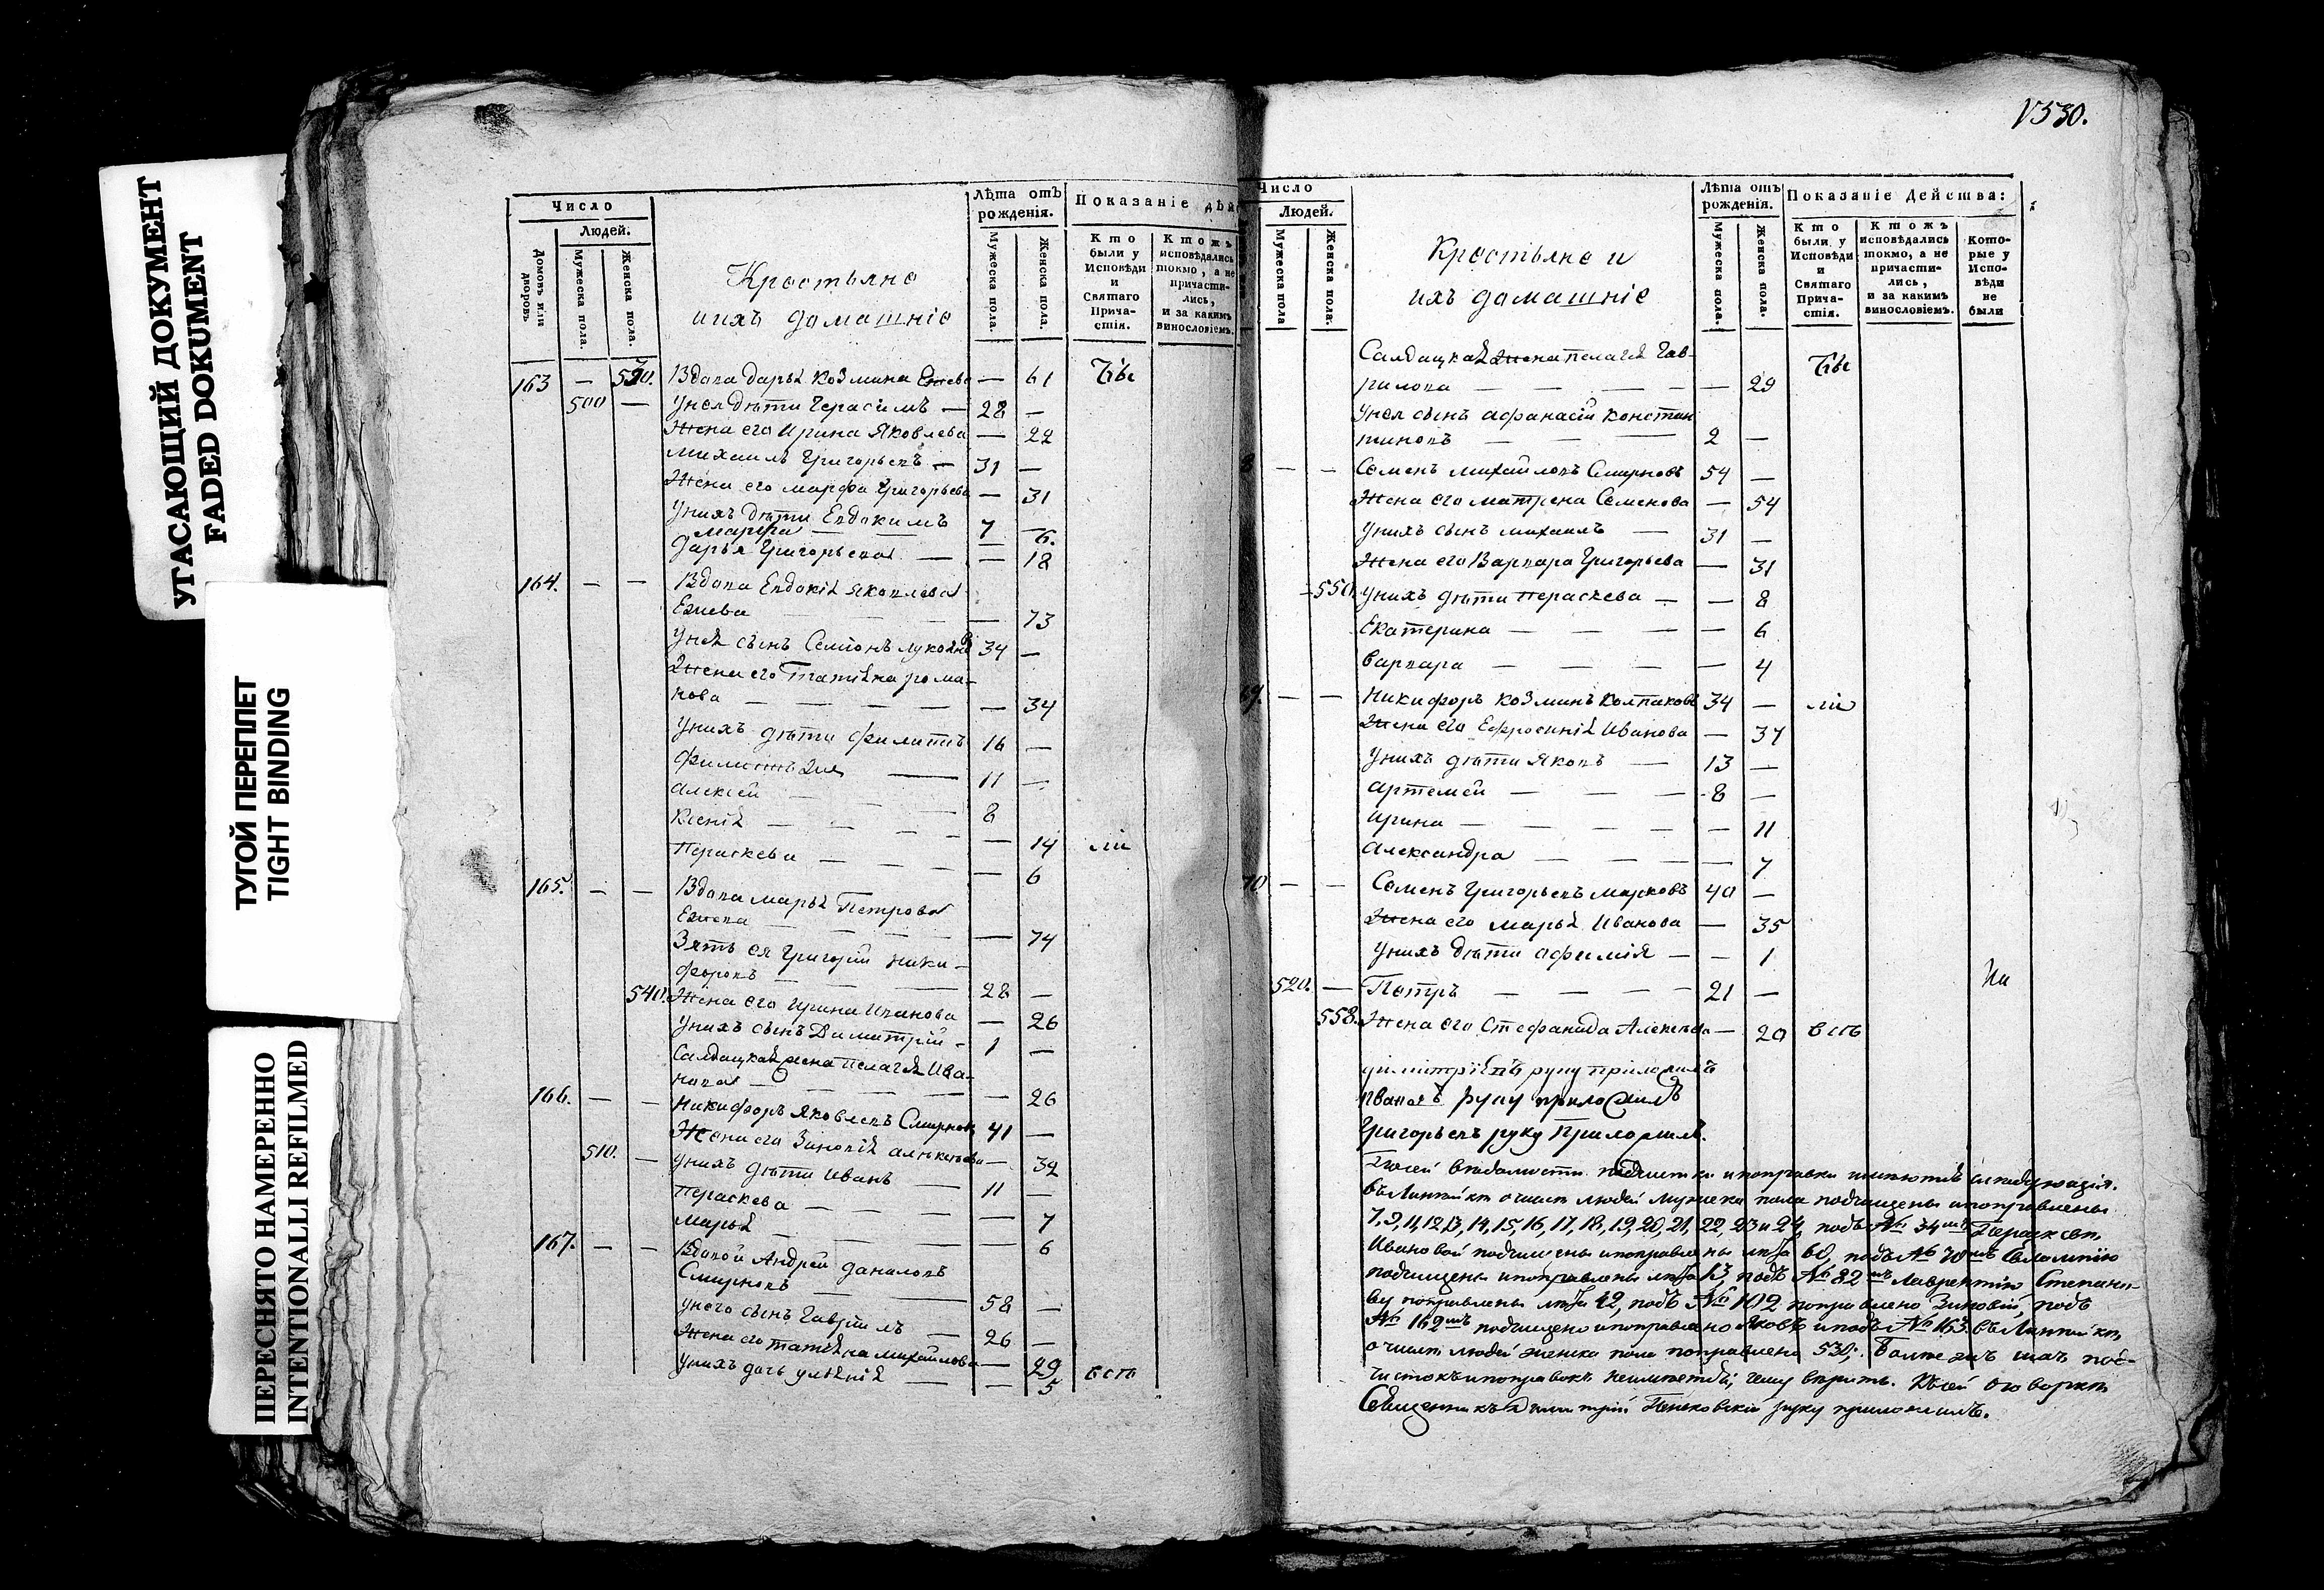 УГАСАЮЩИЙ ДОКУМЕНТ
FADED DOKUMENT
ТУГОЙ ПЕРЕПЛЕТ
TIGHT BINDING
ПЕРЕСНЯТО НАМЕРЕННО
INTENTIONALLI REFILMED
Число
Людей.
Домовъ или дворовъ
Мужеска пола.
Женска пола.
Крестьяне
и ихъ домашніе
Лѣта отъ рожденія.
Мужеска пола.
Женска пола.
Показаніе дѣй
Кто были у Исповѣди и Святаго Причастія.
Ктожъ исповѣдались токмо, а не причастились, и за какимъ винословіемъ.
163 — 530. Вдова Дарья Козмина — 61 бы
500 — У нея дѣти Герасимъ — 28 —
Жена его Ирина Яковлева — 22
Михаилъ Григорьевъ — 31 —
Жена его Марфа Григорьева — 31
У нихъ дѣти Евдокимъ 7 —
Марфа — — 6.
Дарья Григорьева — — 18
164. — — Вдова Евдокія Яковлева
— 73
У нея сынъ Семіонъ 34 —
Жена его Татіяна Рома-
нова — — — — 34
У нихъ дѣти Филиппъ 16 —
11 —
Алексей — 8
Ксенія — — — — 14 ли
Пераскева — — — 6
165. — — Вдова Марья Петрова
— 74
Зять ея Григорій Ники-
форовъ — 28 —
540. Жена его Ирина Иванова — 26
У нихъ сынъ Димитрій — 1 —
Салдацкая жена Пелагея Ива-
нова — — — 26
166. — — Никифоръ Яковлевъ Смирновъ 41 —
Жена его Зиновія Алексѣева — 32
510. — У нихъ дѣти Иванъ — 11 —
Пераскева — — — 7
Марья — — — 6
167. — — Вдовой Андрей Даниловъ
Смирновъ — 58 —
У него сынъ Гавріилъ — 26 —
Жена его Татіяна Михайлова — 29
У нихъ дочь Уліянія — — 5 есть
1530.
Число
Людей.
Мужеска пола
Женска пола.
Крестьяне и
ихъ домашніе
Лѣта отъ рожденія.
Мужеска пола.
Женска пола.
Показаніе Дейсшва:
Кто были у Исповѣди и Святаго Причастія.
Ктожъ исповѣдались токмо, а не причастились, и за какимъ винословіемъ.
Которые у Исповѣди не были
Салдацкая жена Пелагея Гав-
рилова — — — — 29 бы
У нея сынъ Афанасій Констан
тиновъ — — 2 —
8 — — Семенъ Михайловъ Смирновъ 54 —
Жена его Матрена Семенова — 54
У нихъ сынъ Михаилъ — 31 —
Жена его Варвара Григорьева — 31
550. У нихъ дѣти Пераскева — — 8
Екатерина — — — — 6
Варвара — — — — 4
9. — — Никифоръ Козминъ Колпаковъ 34 — ли
Жена его Ефросинія Иванова — 37
У нихъ дѣти Яковъ — 13 —
Артемей — — — 8 —
Ирина — — — — 11
Александра — — — 7
70 — — Семенъ Григорьевъ Марковъ 40 —
Жена его Марья Иванова — 35
У нихъ дѣти Афимія — — 1
520. — Петръ — — — 21 — Ни
558. Жена его Стефанида Алексѣева — 20 есть
Димитріевъ руку приложилъ
Ивановъ руку приложилъ
Григорьевъ руку приложилъ.
По сей вѣдомости подчистки и поправки имѣются слѣдующія.
о числѣ людей мужеска пола подчищены и поправлены
7, 9, 11, 12, 13, 14, 15, 16, 17, 18, 19, 20, 21, 22, 23 и 24, подъ № 34мъ Пераскевѣ
Ивановой подчищены и поправлены лѣта 60, подъ № 70мъ Соломнію
подчищены и поправлены лѣта 13, подъ № 82мъ Лаврентію Степано-
ву поправлены лѣта 42, подъ № 102 поправлено Зиновій, подъ
№ 162мъ подчищено и поправлено Яковъ и подъ № 163
о числѣ людей женска пола поправлено 530; Болѣе
чистокъ и поправокъ неимѣетъ; чему вѣрить. Къ сей оговоркѣ
Священникъ Димитрій руку приложилъ.